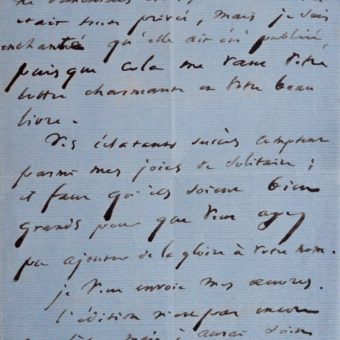 était privé, mais je suis
enchanté qu'elle ait été publiée,
puisque cela me vaut votre
lettre charmante et votre beau
livre.
Vos éclatants succès comptent
parmi mes joies de solitaire ;
il faut qu'ils soient bien
grands pour que vous ayez
pu ajouter de la gloire à votre nom.
je vous envoie mes œuvres.
l'édition n'est pas encore
mais j'aurai soin